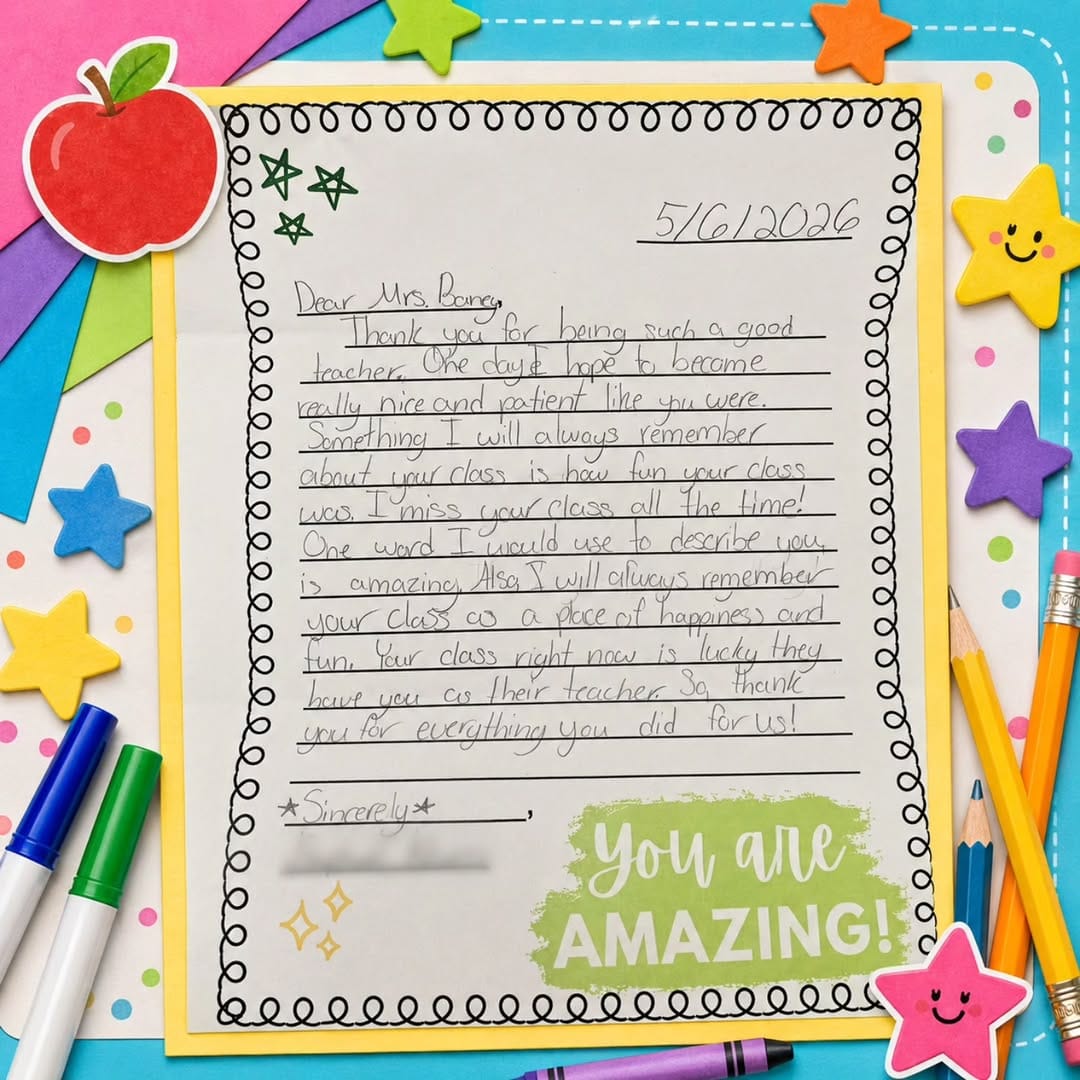 5/6/2026
Dear Mrs. Baney,
Thank you for being such a good
teacher. One day I hope to become
really nice and patient like you were.
Something I will always remember
about your class is how fun your class
was. I miss your class all the time!
One word I would use to describe you,
is amazing. Also, I will always remember
your class as a place of happiness and
fun. Your class right now is lucky they
have you as their teacher. So, thank
you for everything you did for us!
*Sincerely*,
You are
AMAZING!